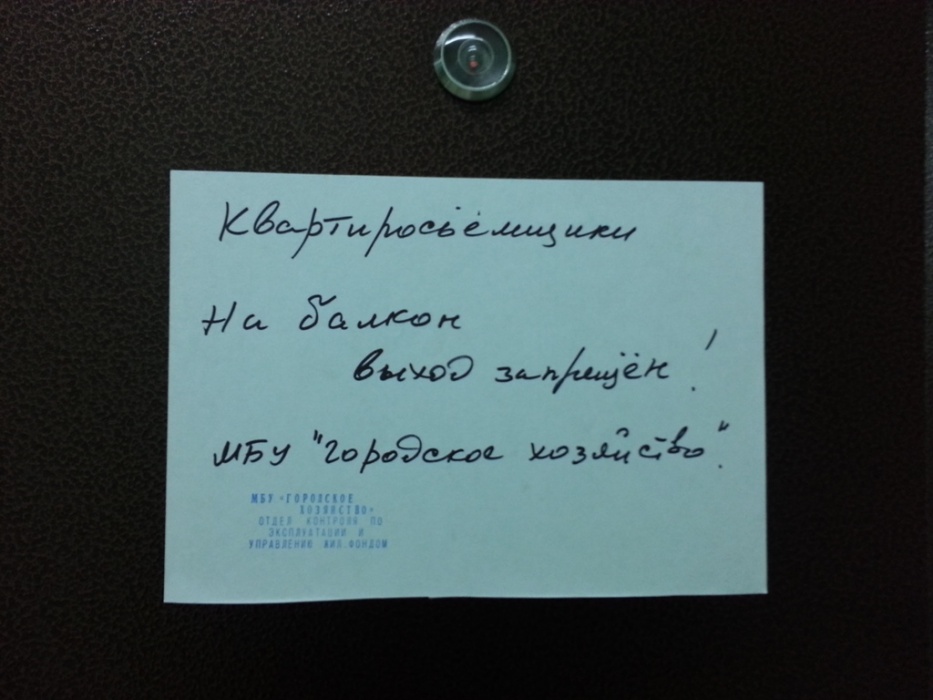 Квартиросъёмщики
На балкон
выход запрещён!
МБУ "Городское хозяйство".
МБУ «ГОРОДСКОЕ
ХОЗЯЙСТВО»
ОТДЕЛ КОНТРОЛЯ ПО
ЭКСПЛУАТАЦИИ И
УПРАВЛЕНИЮ ЖИЛ.ФОНДОМ